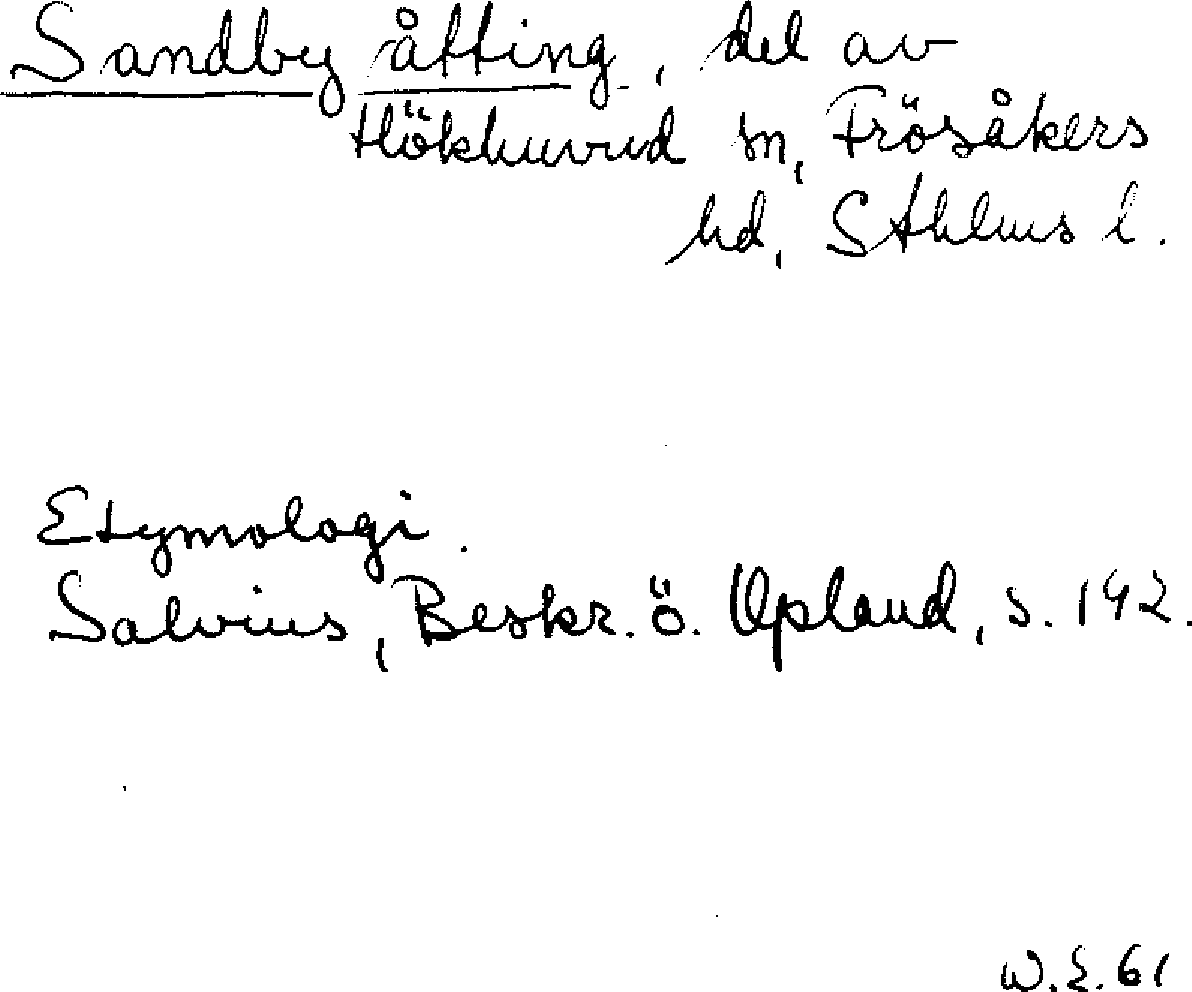 Sandby åtting, del av
Hökhuvud sn, Frösåkers
hd, Sthlms l.
Etymologi.
Salvius, Beskr. ö. Upland, s. 192.
W.E. 61